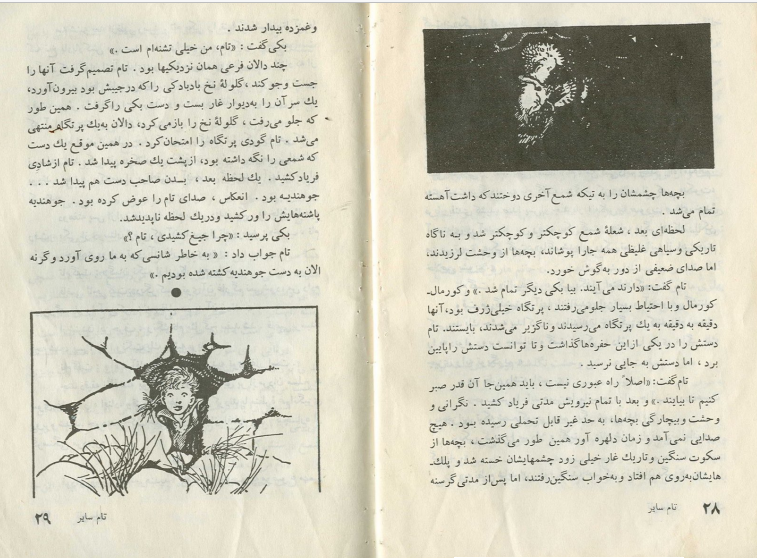 بچه‌ها چشمشان را به تیکه شمع آخری دوختند که داشت آهسته
تمام می‌شد .
لحظه‌ای بعد ، شعلهٔ شمع کوچکتر و کوچکتر شد و بـه ناگاه
تاریکی وسیاهی غلیظی همه جارا پوشاند، بچه‌ها از وحشت لرزیدند،
اما صدای ضعیفی از دور به‌گوش خورد.
تام گفت: «دارند می‌آیند. بیا بکی دیگر تمام شد .» وکورمال‌ـ
کورمال وبا احتیاط بسیار جلومی‌رفتند ، پرتگاه خیلی‌ژرف بود، آنها
دقیقه به دقیقه به یك پرتگاه می‌رسیدند وناگزیر می‌شدند، بایستند. تام
دستش را در یکی ازاین حفره‌هاگذاشت وتا توانست دستش راپایین
برد ، اما دستش به جایی نرسید .
تام‌گفت: «اصلاً راه عبوری نیست ، باید همین‌جا آن قدر صبر
کنیم تا بیایند .» و بعد با تمام نیرویش مدتی فریاد کشید . نگرانی و
وحشت وبیچارگی بچه‌ها، به حد غیر قابل تحملی رسیده بـود . هیچ
صدایی نمی‌آمد و زمان دلهره آور همین طور می‌گذشت ، بچه‌ها از
سکوت سنگین وتاریك غار خیلی زود چشمهایشان خسته شد و پلك‌ـ
هایشان‌به‌روی هم افتاد وبه‌خواب سنگین‌رفتند، اما پس‌از مدتی‌گرسنه
۲۸ تام سایر
وغمزده بیدار شدند .
بکی‌گفت : «تام، من خیلی تشنه‌ام است .»
چند دالان فرعی همان نزدیکیها بود . تام تصمیم‌گرفت آنها را
جست وجو کند ، گلولهٔ نخ بادبادکی راکه درجیبش بود بیرون‌آورد،
یك سر آن را به‌دیوار غار بست و دست بکی راگرفت . همین طور
که جلو می‌رفت ، گلولهٔ نخ را بازمی‌کرد، دالان به‌یك پرتگاه منتهی
می‌شد . تام گودی پرتگاه را امتحان‌کرد . در همین موقع یك دست
که شمعی را نگه داشته بود، ازپشت یك صخره پیدا شد . تام ازشادی
فریادکشید . یك لحظه بعد ، بـدن صاحب دست هم پیدا شد . . .
جوهندیـه بود . انعکاس ، صدای تام را عوض کرده بود . جوهندیه
پاشنه‌هایش را ورکشید ودریك لحظه ناپدیدشد.
بکی پرسید : «چرا جیـغ کشیدی ، تام ؟»
تام جواب داد : « به خاطر شانسی که به ما روی آورد وگرنه
الان به دست جوهندیه کشته شده بودیم .»
تام سایر ۲۹